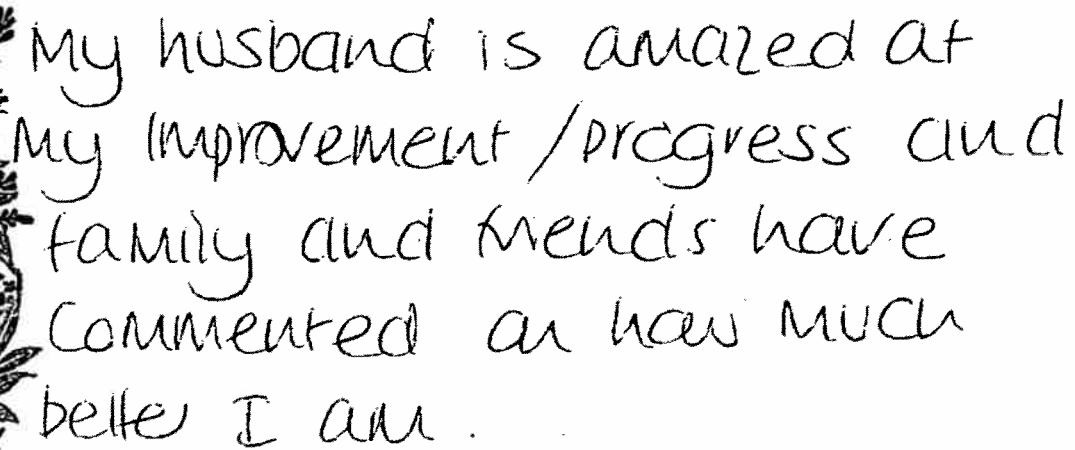 My husband is amazed at
my improvement/progress and
family and friends have
commented on how much
better I am.